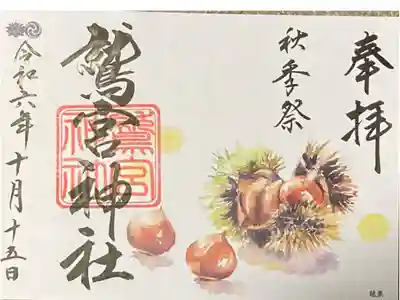 奉拝
秋季祭
鷲宮神社
令和六年十月十五日